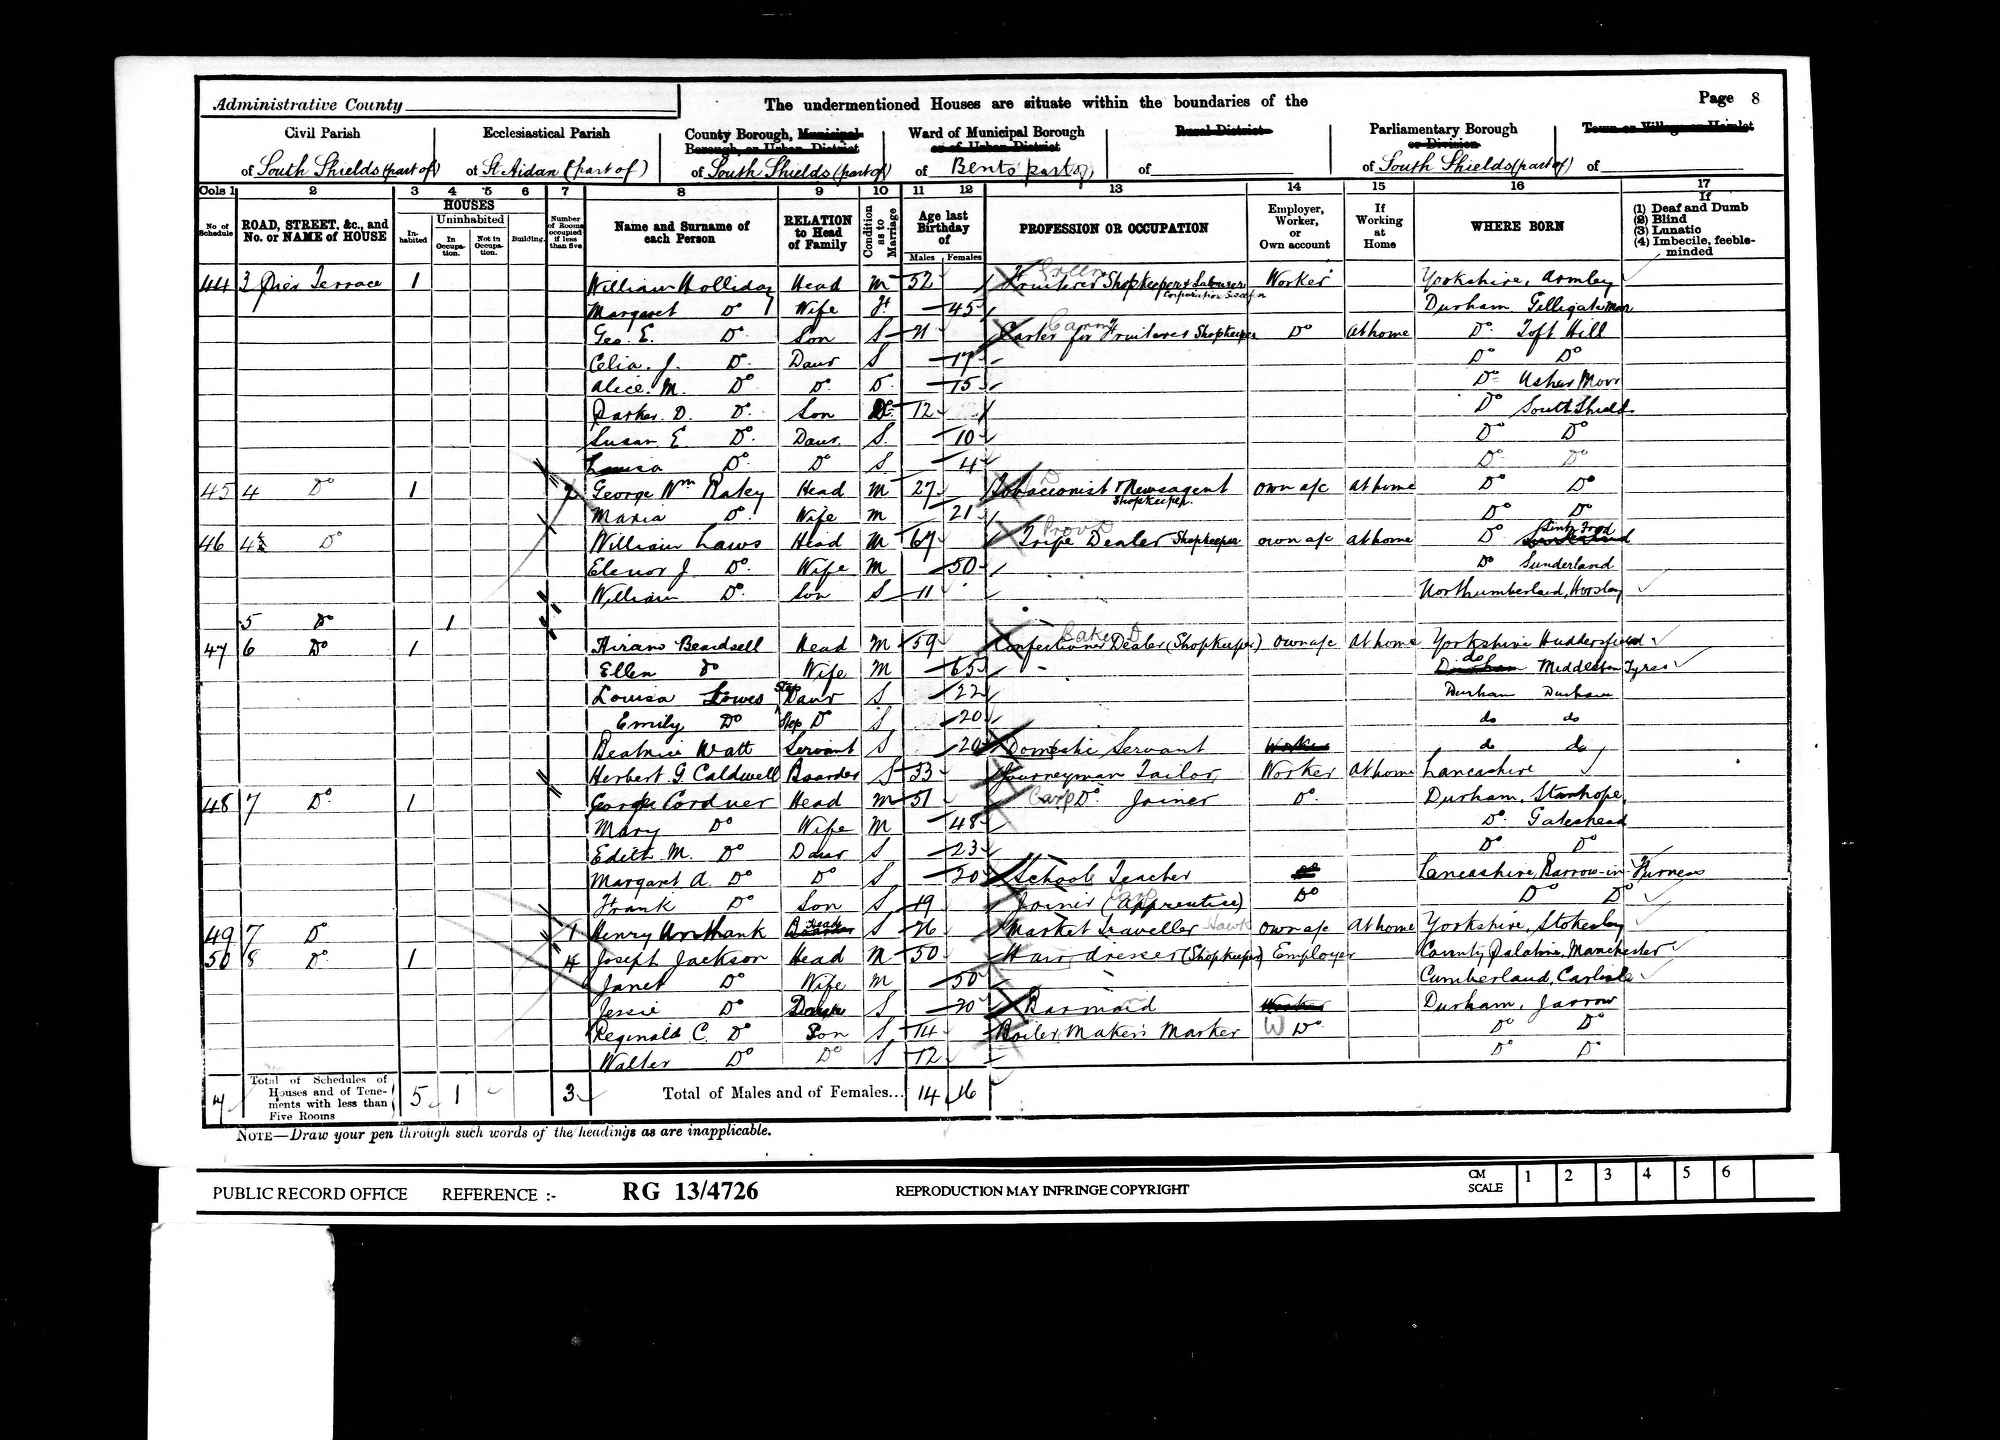 Administrative County
The undermentioned Houses are situate within the boundaries of the
Page 8
Civil Parish
of South Shields (part of)
Ecclesiastical Parish
of St Aidan (part of)
County Borough, Municipal Borough, or Urban District
of South Shields (part of)
Ward of Municipal Borough or of Urban District
of Bents (part of)
Rural District
of
Parliamentary Borough or Division
of South Shields (part of)
Town or Village or Hamlet
of
Cols 1 2 3 4 5 6 7 8 9 10 11 12 13 14 15 16 17
No of Schedule
ROAD, STREET, &c., and No. or NAME of HOUSE
HOUSES
Inhabited
Uninhabited
In Occupation.
Not in Occupation.
Building.
Number of Rooms occupied if less than five
Name and Surname of each Person
RELATION to Head of Family
Condition as to Marriage
Age last Birthday of
Males Females
PROFESSION OR OCCUPATION
Employer, Worker, or Own account
If Working at Home
WHERE BORN
If
(1) Deaf and Dumb
(2) Blind
(3) Lunatic
(4) Imbecile, feeble-minded
44 3 Pier Terrace 1 William Holliday Head M 52 Fruiterer Shopkeeper & Labourer Corporation Worker Yorkshire, Armley
Margaret Do Wife 45 Durham Gilligate Moor
Geo. E. Do Son S 21 Carter for Fruiterer Shopkeeper Do At home Do Toft Hill
Celia. J. Do Daur S 17 Do Do
Alice. M. Do Do Do 15 Do Ushaw Moor
Parker. D. Do Son Do 12 Do South Shields
Susan. E. Do Daur. S 10 Do Do
Louisa Do Do S 4 Do Do
45 4 Do 1 2 George Wm Raley Head M 27 Tobacconist & Newsagent Shopkeeper Own a/c At home Do Do
Maria Do Wife M 21 Do Do
46 4½ Do William Laws Head M 67 Tripe Dealer Shopkeeper Own a/c At home Do
Elenor J Do Wife M 50 Do Sunderland
William Do Son S 11 Northumberland, Horsley
5 Do 1
47 6 Do 1 Hiram Beardsell Head M 59 Confectioner Dealer (Shopkeeper) Baker D Own a/c At home Yorkshire Huddersfield
Ellen Do Wife M 65 Durham do Middleton Tyres
Louisa Lowes Step Daur S 22 Durham Durham
Emily Do Step Do S 20 do do
Beatrice Watt Servant S 20 Domestic Servant Worker do do
Herbert G. Caldwell Boarder S 33 Journeyman Tailor Worker At home Lancashire
48 7 Do 1 George Cordner Head M 51 Do Joiner Carp Do. Durham, Stanhope,
Mary Do Wife M 48 Do. Gateshead
Edith M. Do Daur S 23 Do Do
Margaret A. Do Do S 20 School Teacher Do Lancashire, Barrow-in-Furness
Frank Do Son S 19 Joiner (Apprentice) Carp Do Do Do
49 7 Do 1 Henry Head Boarder S 26 Market Traveller Hawk Own a/c At home Yorkshire, Stokesley
50 8 Do 1 4 Joseph Jackson Head M 50 Hairdresser (Shopkeeper) Employer County Palatine, Manchester
Janet Do Wife M 50 Cumberland, Carlisle
Jessie Do Daur S 20 Barmaid Worker Durham, Jarrow
Reginald C. Do Son S 14 Boiler Makers Marker W Do Do Do
Walter Do Do S 12 Do Do
7 Total of Schedules of Houses and of Tenements with less than Five Rooms 5 1 3 Total of Males and of Females... 14 16
NOTE—Draw your pen through such words of the headings as are inapplicable.
PUBLIC RECORD OFFICE REFERENCE :- RG 13/4726 REPRODUCTION MAY INFRINGE COPYRIGHT CM SCALE 1 2 3 4 5 6